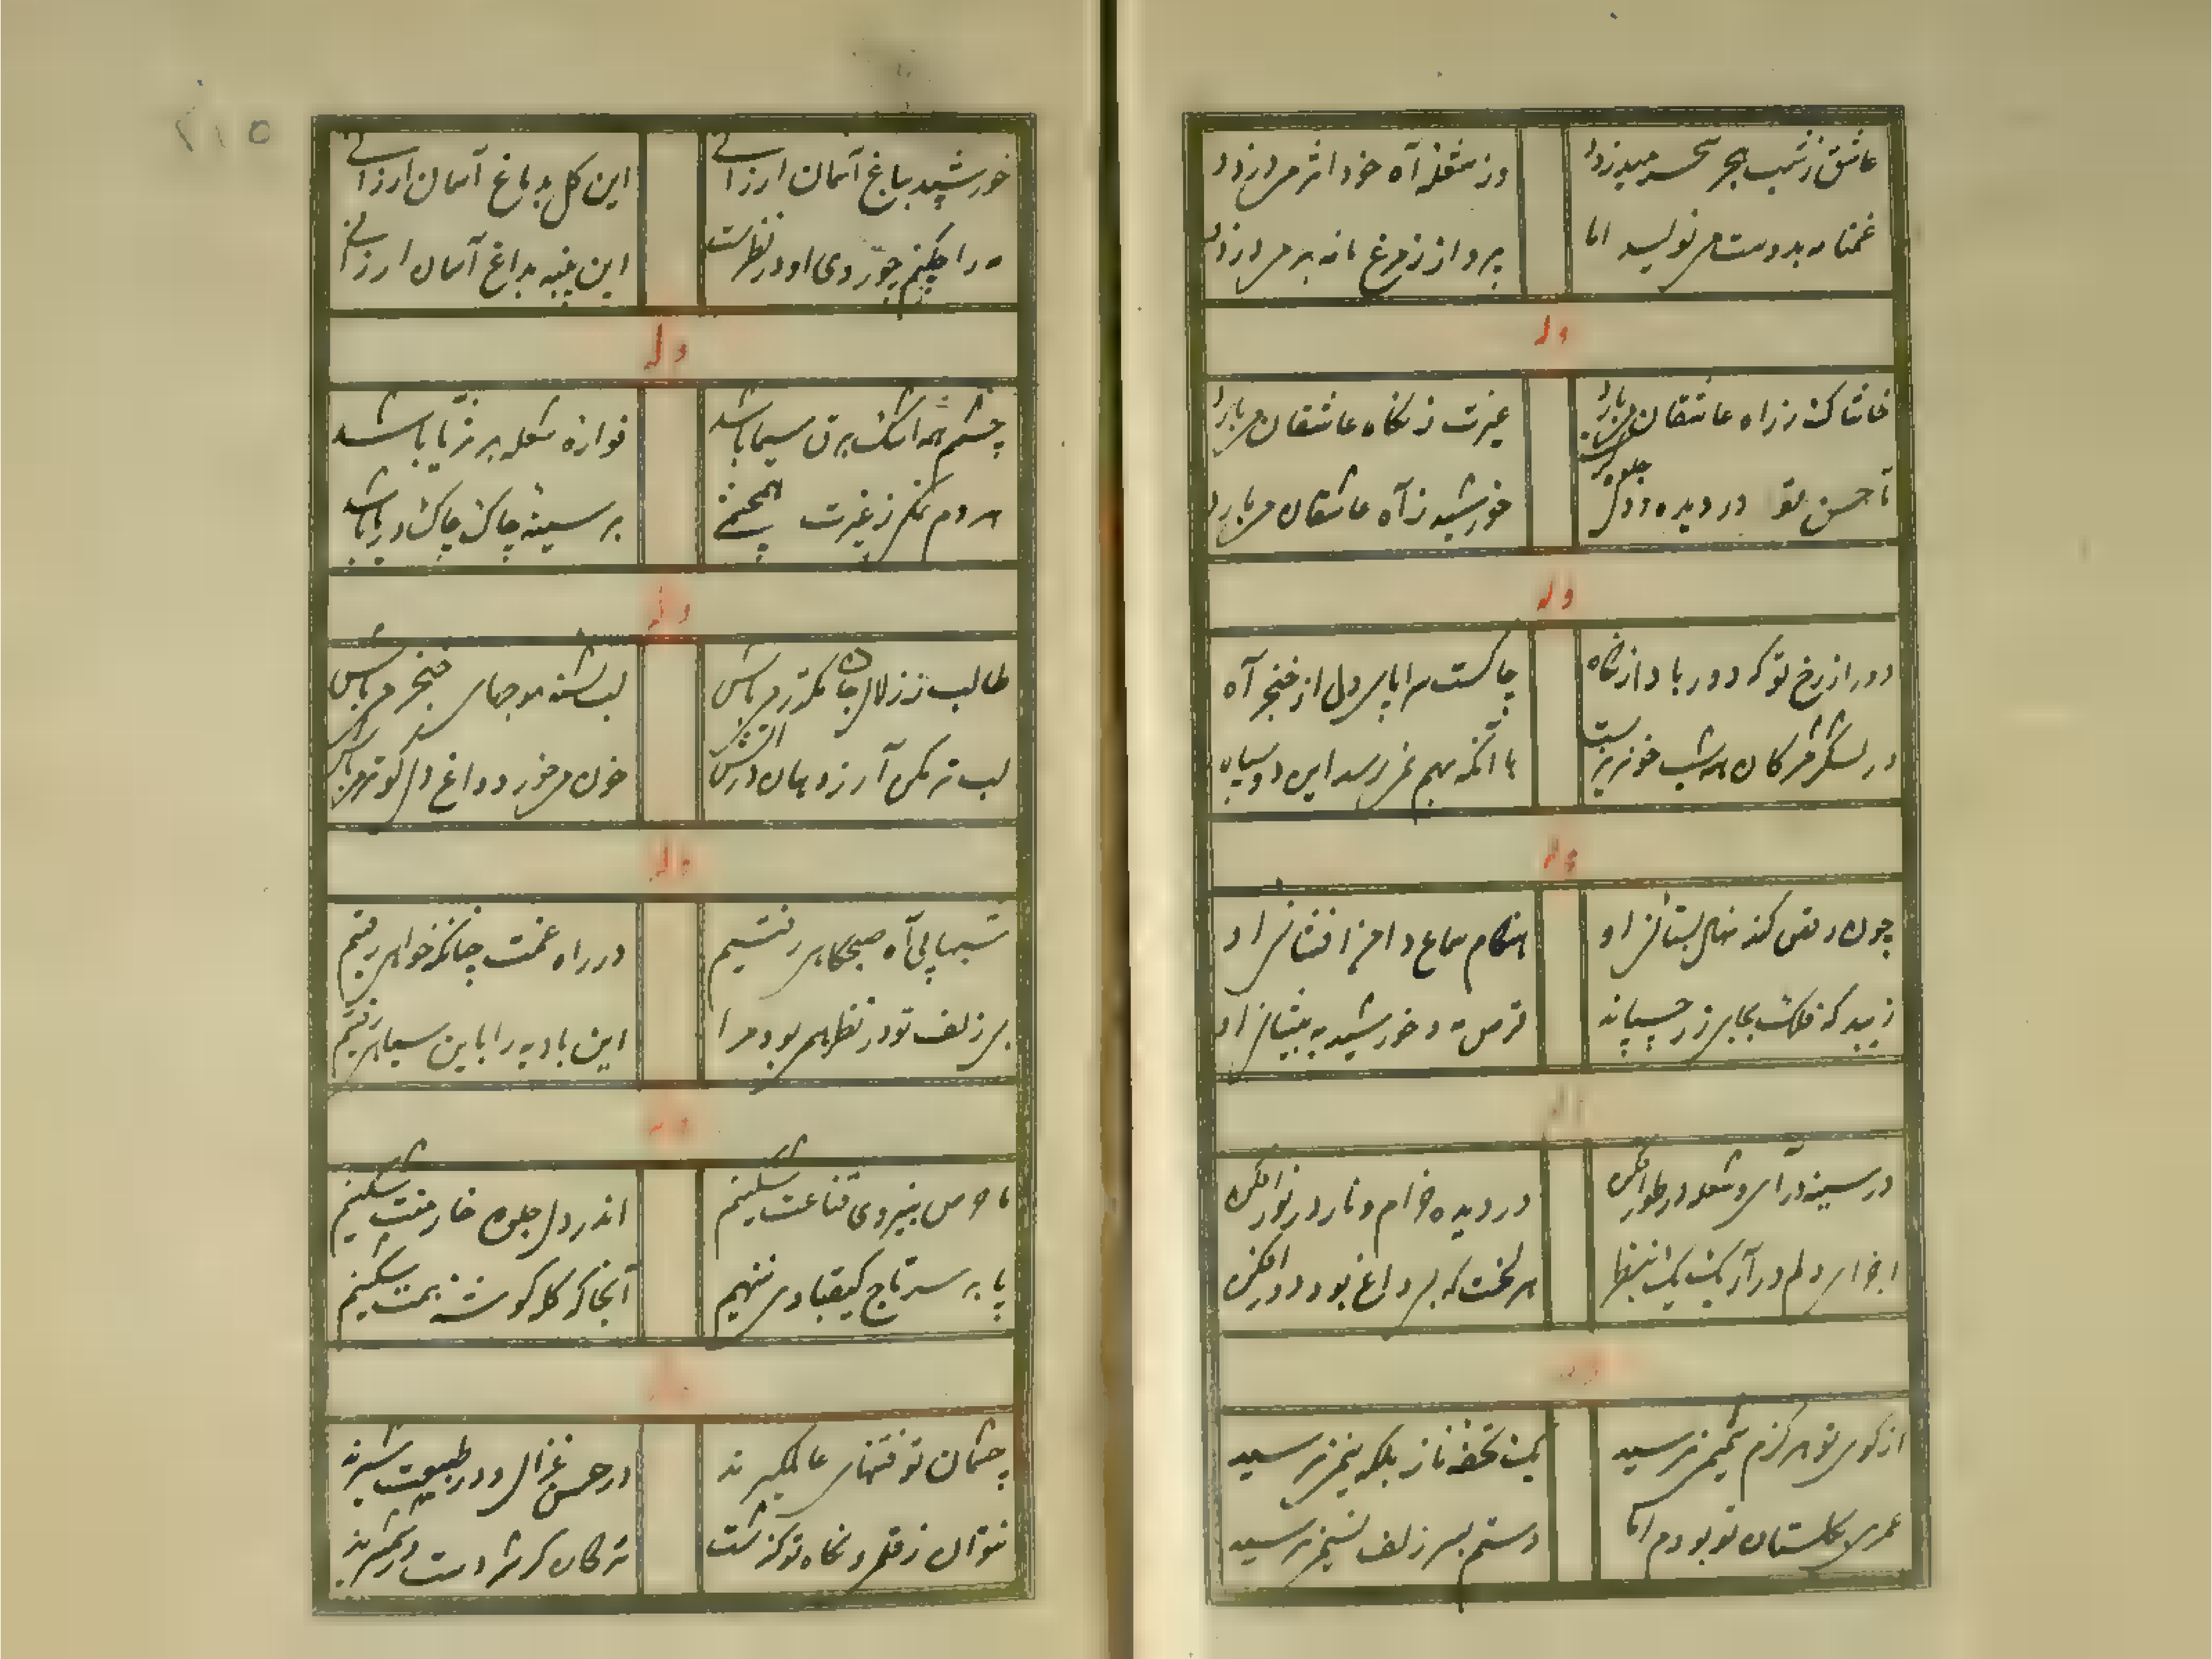 عاشق ز شب هجر سحر میدزدد
وز شعله آه خود اثر می دزدد
غمنامه بدوست می نویسد اما
پرواز ز مرغ نامه بر می دزدد
وله
خاشاک ز راه عاشقان می بارد
غیرت ز نگاه عاشقان می بارد
تا حسن تو در دیده و دل جلوه
خورشید ز آه عاشقان می بارد
وله
دور از رخ تو که دور باد از نگاه
چاکست سراپای دل از خنجر آه
در لشکر مژگان همه شب خونریزیست
تا آنکه بهم نمی رسد این دو سپاه
وله
چون رقص کند نهال بستانی او
هنگام سماع دامن افشانی او
زیبد که فلک بجای زر چسپاند
قرص مه و خورشید به پیشانی او
وله
در سینه درآی و شعله در طور افکن
در دیده خرام و نار در نور افکن
اجزای دلم درآر یک یک بنظر
هر لخت که بی داغ بود دور افکن
وله
از کوی تو هرگزم شمیمی نرسید
یک تحفه ناز بلکه نیمی نرسید
عمری بگلستان تو بودم اما
دستم بسر زلف نسیمی نرسید
۲۱۵
خورشید بباغ آسمان ارزانی
این گل بدماغ آسمان ارزانی
مه را چکنم چو روی او در نظرست
این پنبه بداغ آسمان ارزانی
وله
چشم همه اشک برق سیما باشد
فواره شعله بر ثریا باشد
مردم نگهی ز غیرت
بر سینه چاک چاک دریا باشد
وله
طالب ز زلال جان مکدر می باش
لب تشنه موجهای خنجر می باش
لب تر مکن آرزو همان
خون می خور و داغ دل
وله
شبها پی آه صبحگاهی رفتیم
در راه غمت چنانکه خواهی رفتیم
بی زلف تو در نظر بود مرا
این بادیه را باین سیاهی رفتیم
وله
ما حرص بنیروی قناعت شکنیم
اندر دل جلوه خار منت شکنیم
پا بر سر تاج کیقبادی ننهیم
آنجا که کله گوشه همت شکنیم
وله
چشمان تو فتنهای عالمگیرند
در حسن غزال و در طبیعت شیرند
نتوان ز قلمرو نگاه تو گذشت
ترکان کرشمه دست بر شمشیرند